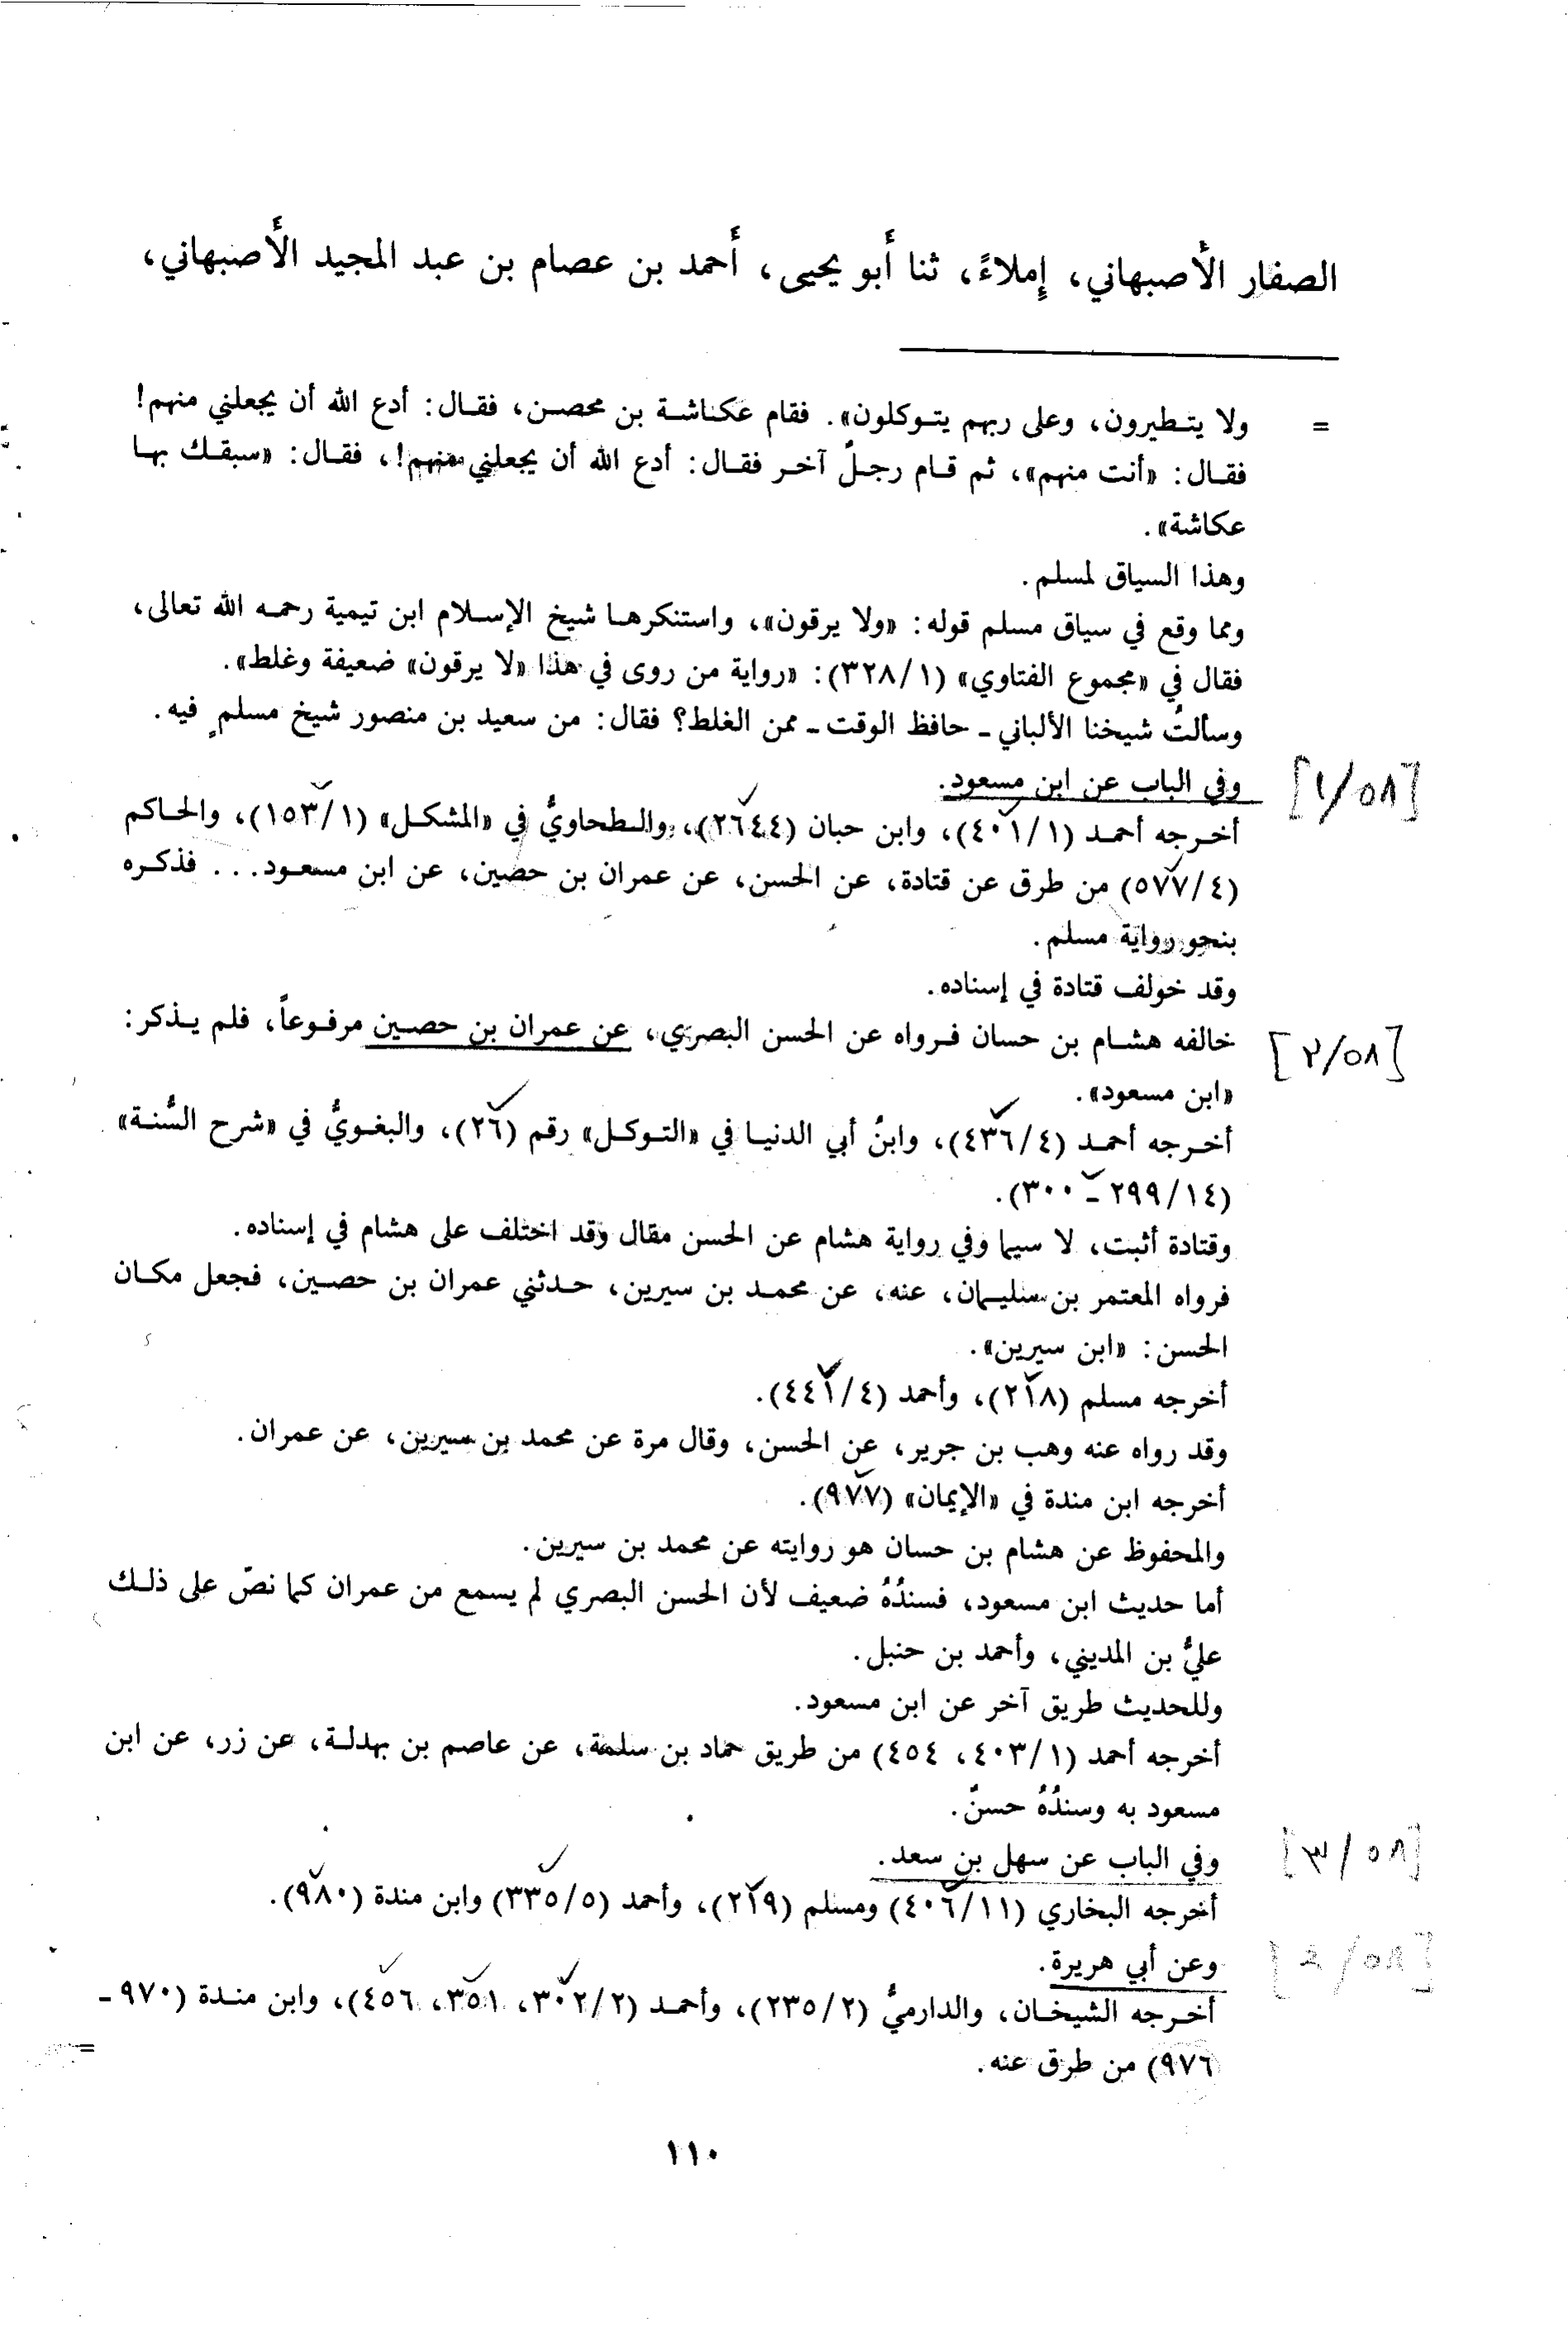 الصفار الأصبهاني، إملاءً، ثنا أبو يحيى، أحمد بن عصام بن عبد المجيد الأصبهاني،
= ولا يتطيرون، وعلى ربهم يتوكلون». فقام عكناشة بن محصن، فقال: أدع الله أن يجعلني منهم!
فقال: «أنت منهم»، ثم قام رجلٌ آخر فقال: أدع الله أن يجعلني منهم!، فقال: «سبقك بها
عكاشة».
وهذا السياق لمسلم.
ومما وقع في سياق مسلم قوله: «ولا يرقون»، واستنكرها شيخ الإسلام ابن تيمية رحمه الله تعالى،
فقال في «مجموع الفتاوي» (٣٢٨/١): «رواية من روى في هذا «لا يرقون» ضعيفة وغلط».
وسألتُ شيخنا الألباني ـ حافظ الوقت ـ ممن الغلط؟ فقال: من سعيد بن منصور شيخ مسلمٍ فيه.
وفي الباب عن ابن مسعود. [١/٥٨]
أخرجه أحمد (٤٠١/١)، وابن حبان (٢٦٤٤)، والطحاويُّ في «المشكل» (١٥٣/١)، والحاكم
(٥٧٧/٤) من طرق عن قتادة، عن الحسن، عن عمران بن حصين، عن ابن مسعود... فذكره
بنحو رواية مسلم.
وقد خولف قتادة في إسناده.
خالفه هشام بن حسان فرواه عن الحسن البصري، عن عمران بن حصين مرفوعاً، فلم يذكر: [٢/٥٨]
«ابن مسعود».
أخرجه أحمد (٤٣٦/٤)، وابنُ أبي الدنيا في «التوكل» رقم (٢٦)، والبغويُّ في «شرح السُّنة»
(٢٩٩/١٤ ـ ٣٠٠).
وقتادة أثبت، لا سيما وفي رواية هشام عن الحسن مقال وقد اختلف على هشام في إسناده.
فرواه المعتمر بن سليمان، عنه، عن محمد بن سيرين، حدثني عمران بن حصين، فجعل مكان
الحسن: «ابن سيرين».
أخرجه مسلم (٢١٨)، وأحمد (٤٤١/٤).
وقد رواه عنه وهب بن جرير، عن الحسن، وقال مرة عن محمد بن سيرين، عن عمران.
أخرجه ابن مندة في «الإيمان» (٩٧٧).
والمحفوظ عن هشام بن حسان هو روايته عن محمد بن سيرين.
أما حديث ابن مسعود، فسندُهُ ضعيف لأن الحسن البصري لم يسمع من عمران كما نصّ على ذلك
عليُّ بن المديني، وأحمد بن حنبل.
وللحديث طريق آخر عن ابن مسعود.
أخرجه أحمد (٤٠٣/١، ٤٥٤) من طريق حماد بن سلمة، عن عاصم بن بهدلة، عن زر، عن ابن
مسعود به وسندُهُ حسنٌ.
وفي الباب عن سهل بن سعد. [٣/٥٨]
أخرجه البخاري (٤٠٦/١١) ومسلم (٢١٩)، وأحمد (٣٣٥/٥) وابن مندة (٩٨٠).
وعن أبي هريرة. [٤/٥٨]
أخرجه الشيخان، والدارميُّ (٢٣٥/٢)، وأحمد (٣٠٢/٢، ٣٥١، ٤٥٦)، وابن مندة (٩٧٠ ـ
٩٧٦) من طرق عنه. =
١١٠